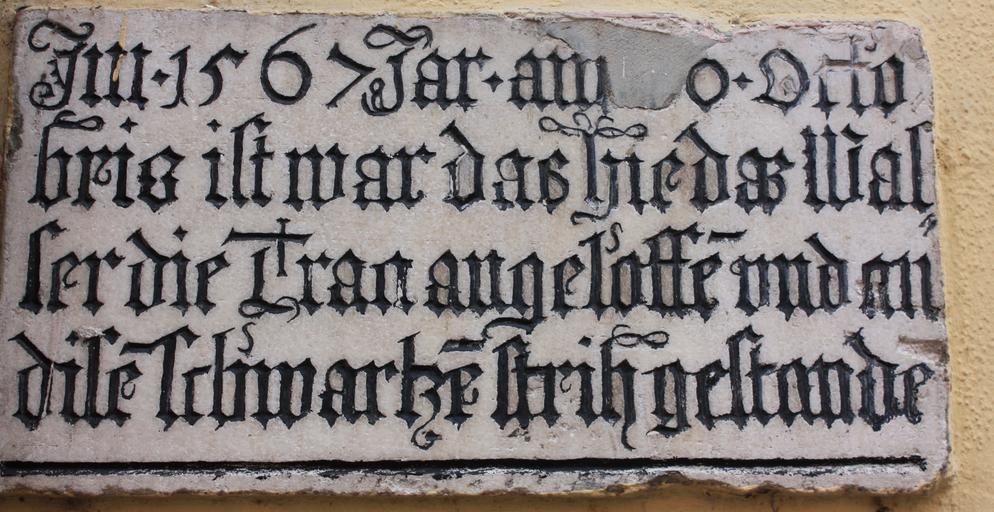 Im · 1567 Jar · am 0 · Octo
bris ist war das hie das Was
ser die Tran angeloffē vnd an
disē Schwartzē strih gestande